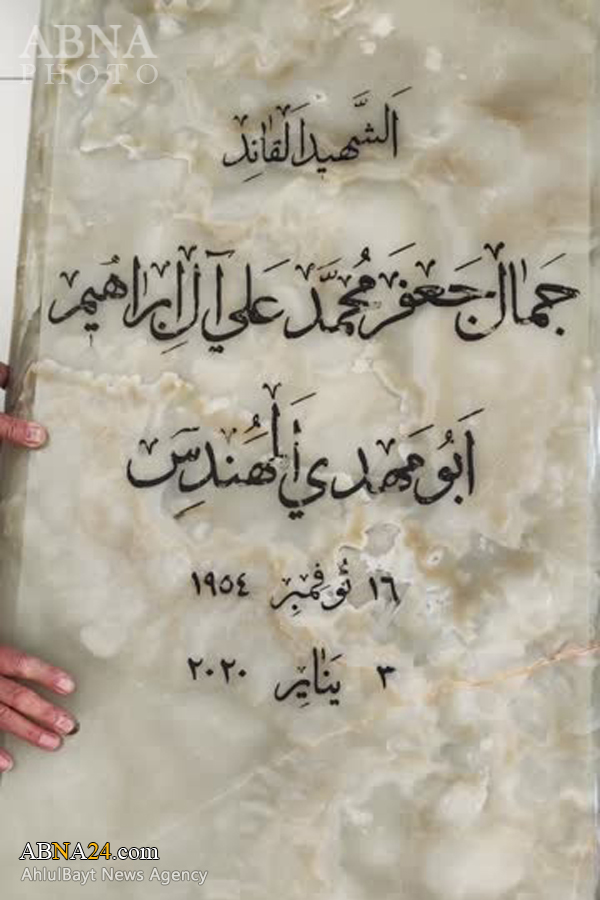 ABNA
PHOTO
اَلشَّهيد اَلقائِد
جَمال جَعفَر مُحَمَّد عَلي آل اِبراهيم
اَبُو مَهدي اَلمُهَندِس
١٦ نُوفَمبِر ١٩٥٤
٣ يَنايِر ٢٠٢٠
ABNA24.com
AhlulBayt News Agency